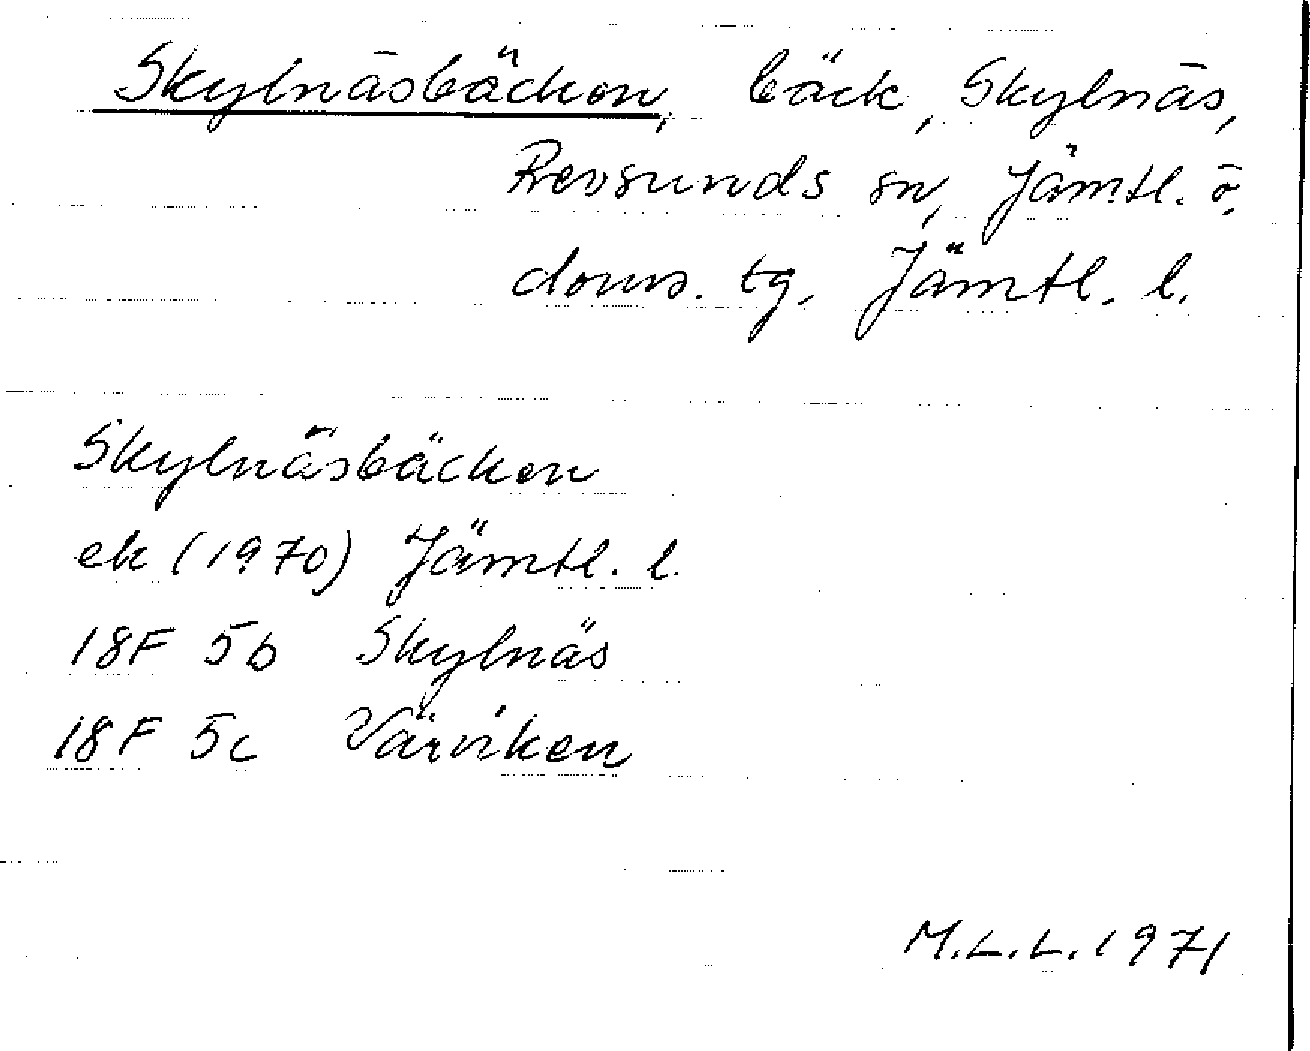 Skylnäsbäcken, bäck, Skylnäs,
Revsunds sn, Jämtl. ö.
doms. tg, Jämtl. l.
Skylnäsbäcken
ek (1970) Jämtl. l.
18F 5b Skylnäs
18F 5c Värviken
M.L.L. 1971